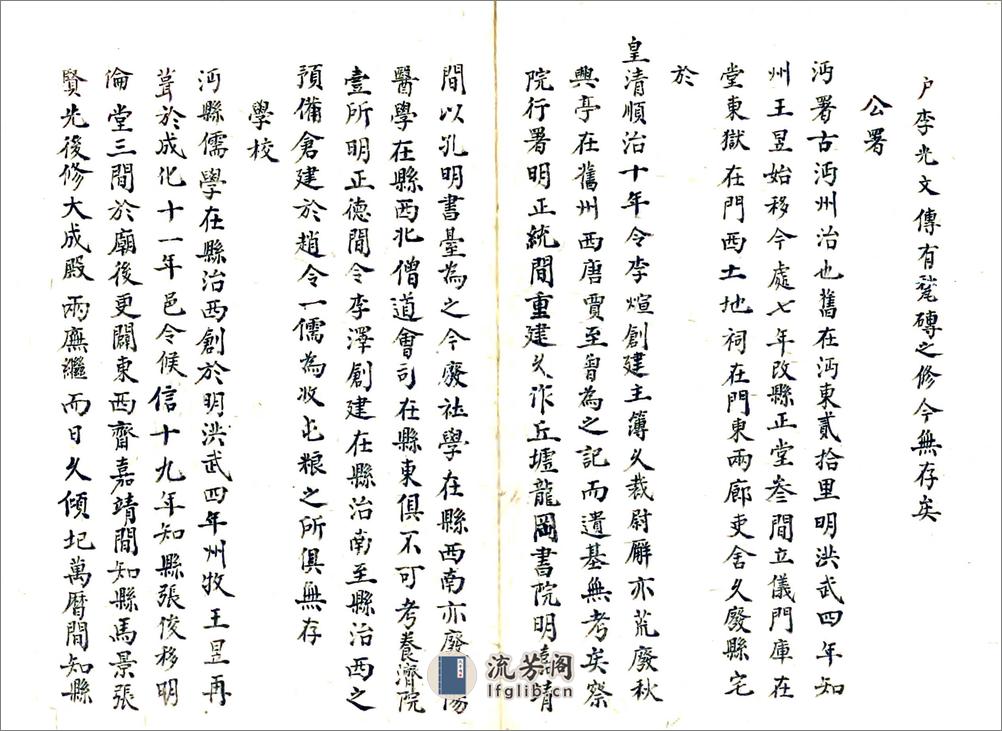 户李光文傳有甃磚之修今無存矣
公署
沔署古沔州治也舊在沔東貳拾里明洪武四年知
州王昱始移今處七年改縣正堂叄間立儀門庫在
堂東獄在門西土地祠在門東兩廊吏舍久廢縣宅
於
皇清順治十年令李煊創建主簿久裁尉廨亦荒廢秋
興亭在舊州西唐賈至曾為之記而遺基無考矣察
院行署明正統間重建久作丘墟龍岡書院明嘉靖
間以孔明書臺為之今廢社學在縣西南亦廢陽
醫學在縣西北僧道會司在縣東俱不可考養濟院
壹所明正德間令李澤創建在縣治南至縣治西之
預備倉建於趙令一儒為收屯粮之所俱無存
學校
沔縣儒學在縣治西創於明洪武四年州牧王昱再
葺於成化十一年邑令候信十九年知縣張俊移明
倫堂三間於廟後更闢東西齋嘉靖間知縣馬景張
賢先後修大成殿兩廡繼而日久傾圮萬曆間知縣
流芳阁
lfglib.cn